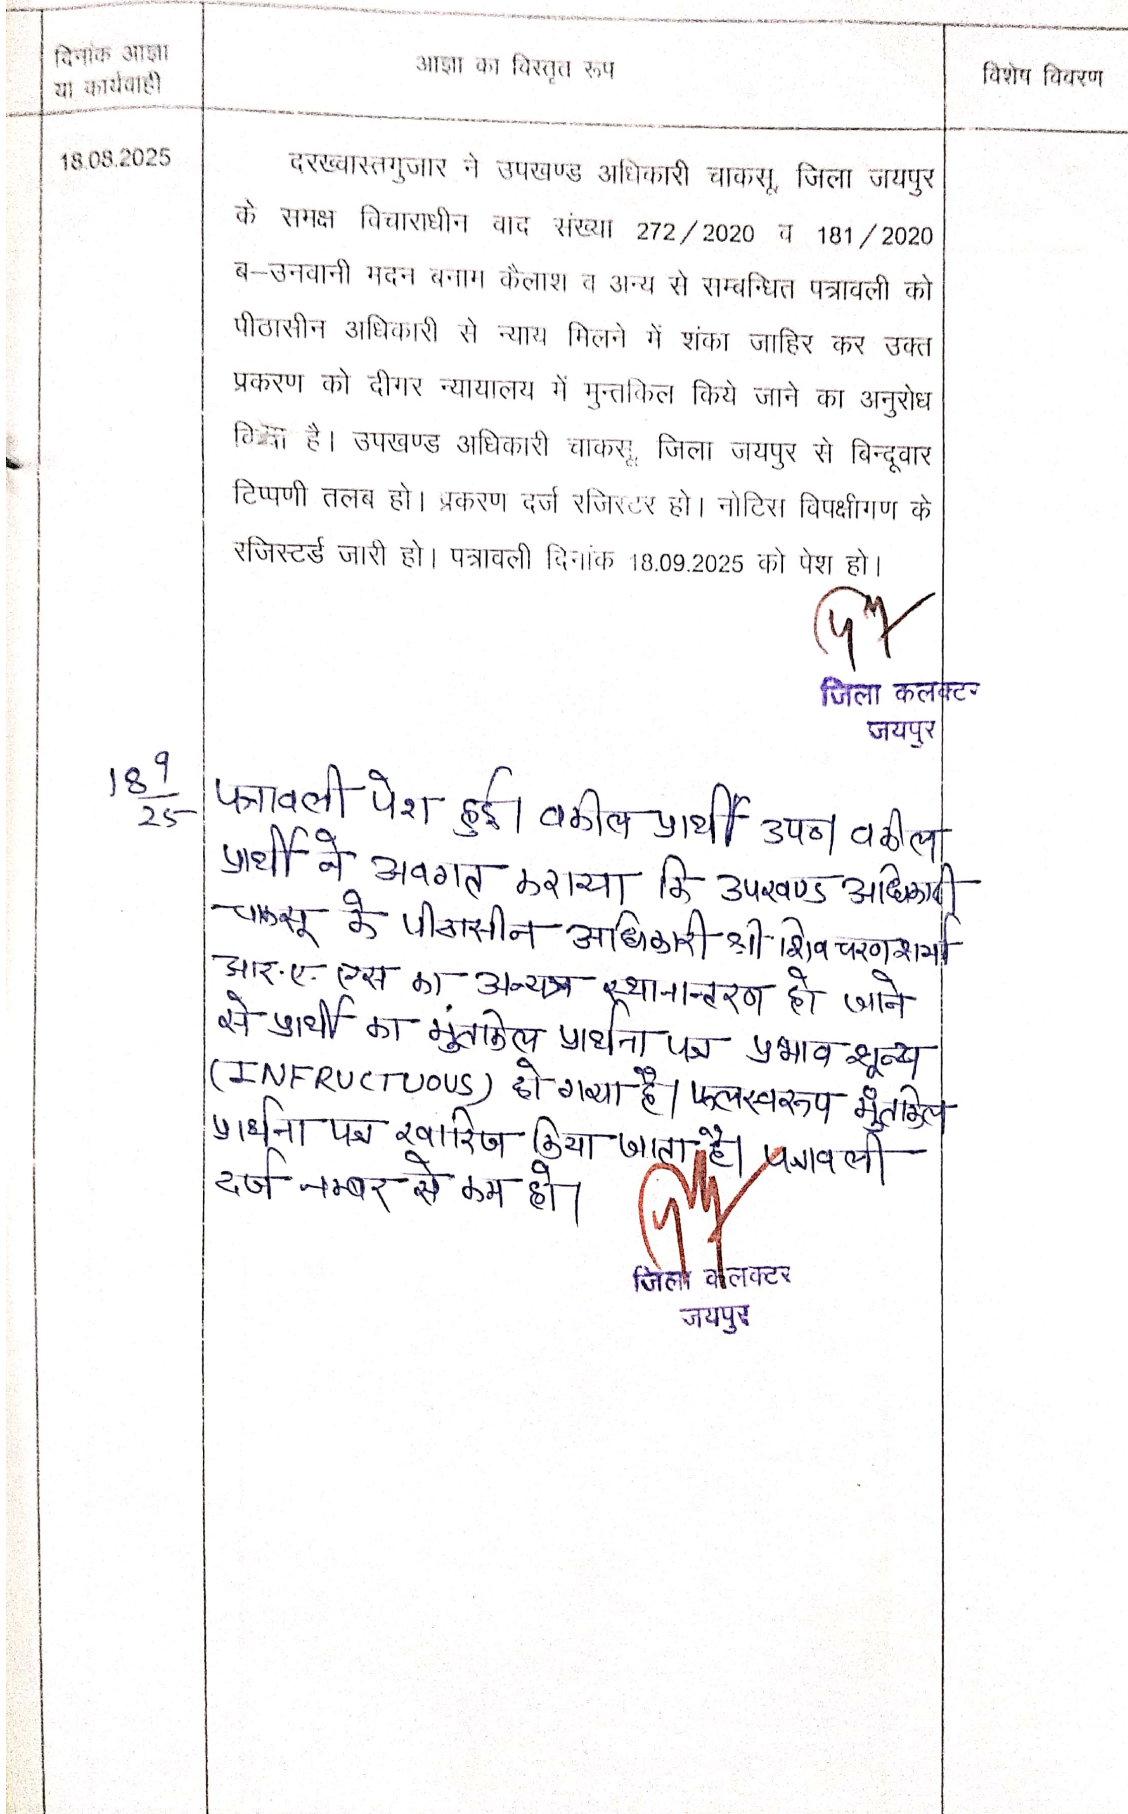 दिनांक आज्ञा
या कार्यवाही
आज्ञा का विस्तृत रूप
विशेष विवरण
18.08.2025
दरख्वास्तगुजार ने उपखण्ड अधिकारी चाकसू, जिला जयपुर
के समक्ष विचाराधीन वाद संख्या 272/2020 व 181/2020
ब–उनवानी मदन बनाम कैलाश व अन्य से सम्बन्धित पत्रावली को
पीठासीन अधिकारी से न्याय मिलने में शंका जाहिर कर उक्त
प्रकरण को दीगर न्यायालय में मुन्तकिल किये जाने का अनुरोध
किया है। उपखण्ड अधिकारी चाकसू, जिला जयपुर से बिन्दूवार
टिप्पणी तलब हो। प्रकरण दर्ज रजिस्टर हो। नोटिस विपक्षीगण के
रजिस्टर्ड जारी हो। पत्रावली दिनांक 18.09.2025 को पेश हो।
जिला कलक्टर
जयपुर
18 9/25
पत्रावली पेश हुई। वकील प्रार्थी उप० वकील
प्रार्थी ने अवगत कराया कि उपखण्ड अधिकारी
चाकसू के पीठासीन अधिकारी श्री शिव चरण शर्मा
आर.ए. एस का अन्यत्र स्थानान्तरण हो जाने
से प्रार्थी का मुंतकिल प्रार्थना पत्र प्रभाव शून्य
(INFRUCTUOUS) हो गया है। फलस्वरूप मुंतकिल
प्रार्थना पत्र खारिज किया जाता है। पत्रावली
दर्ज नम्बर से कम हो।
जिला कलक्टर
जयपुर